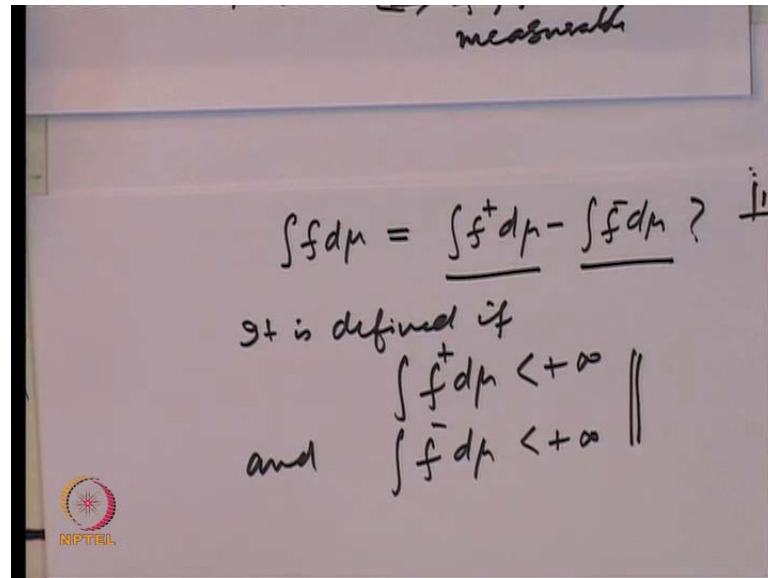 measurable
∫f dμ = ∫f⁺dμ - ∫f⁻dμ ?
It is defined if
∫f⁺dμ < +∞
and ∫f⁻dμ < +∞
NPTEL